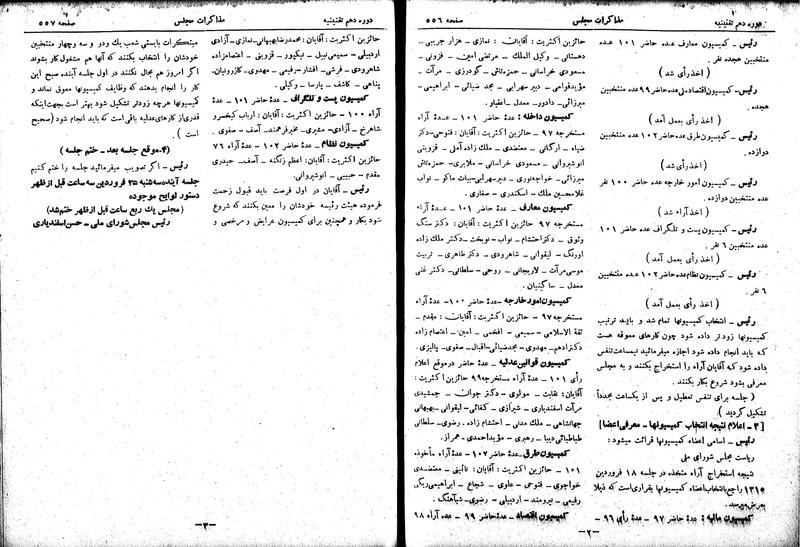 دوره دهم تقنینیه
مذاکرات مجلس
صفحه ۵۵۶
رئیس ـ کمیسیون معارف عده حاضر ۱۰۱ عده
منتخبین هجده نفر.
(اخذ رأی شد)
رئیس ـ کمیسیون اقتصاد ملی عده حاضر ۹۹ عده منتخبین
هجده.
(اخذ رأی بعمل آمد)
رئیس ـ کمیسیون طرق عده حاضر ۱۰۲ عده منتخبین
دوازده.
(اخذ رأی شد)
رئیس ـ کمیسیون امور خارجه عده حاضر ۱۰۰ نفر
عده منتخبین دوازده.
(اخذ آراء شد)
رئیس ـ کمیسیون پست و تلگراف عده حاضر ۱۰۱
عده منتخبین ۶ نفر.
(اخذ رأی بعمل آمد)
رئیس ـ کمیسیون نظام عده حاضر ۱۰۲ عده منتخبین
۶ نفر.
(اخذ رأی بعمل آمد)
رئیس ـ انتخاب کمیسیونها تمام شد و باید ترتیب
کمیسیونها زودتر داده شود چون کارهای معوقه هست
که باید انجام داده شود اجازه میفرمائید نیمساعت تنفس
داده شود که آقایان آراء را استخراج بکنند و به مجلس
معرفی بشود شروع بکار بکنند.
(جلسه برای تنفس تعطیل و پس از یکساعت مجدداً
تشکیل گردید)
[۳ ـ اعلام نتیجه انتخاب کمیسیونها ـ معرفی اعضا]
رئیس ـ اسامی اعضاء کمیسیونها قرائت میشود:
ریاست مجلس شورای ملی
نتیجه استخراج آراء متخذه در جلسه ۱۸ فروردین
۱۳۱۵ راجع بانتخاب اعضاء کمیسیونها بقراری است که ذیلا
بعرض میرسد.
کمیسیون مالیه: عده حاضر ۹۷ ـ عده رأی ۹۶
حائزین اکثریت: آقایان: نمازی ـ هزار جریبی
دهستانی ـ وکیل الملک ـ مرتضی امین ـ فزونی ـ
مسعودی خراسانی ـ حمزه تاش ـ گودرزی ـ مرآت ـ
مؤید قوامی ـ دبیر سهرابی ـ مجد ضیائی ـ ابراهیمی ـ
میرزائی ـ دادور ـ معدل ـ اعتبار.
کمیسیون داخله: عده حاضر ۱۰۱ ـ عده آراء
مستخرجه ۹۷ حائزین اکثریت: آقایان: فتوحی ـ دکتر
ضیاء ـ ارگانی ـ معتضدی ـ ملک زاده آمل ـ قزوینی
انوشیروانی ـ مسعودی خراسانی ـ ملایری ـ حمزه تاش
میرزائی ـ خواجه نوری ـ دبیر سهرابی ـ بیات ماکو ـ نواب
غلامحسین ملک ـ اسکندری ـ صفاری.
کمیسیون معارف: عده حاضر ۱۰۱ ـ عده آراء
مستخرجه ۹۷ حائزین اکثریت: آقایان: دکتر سنگ
وثوق ـ دکتر احتشام ـ نواب ـ نوبخت ـ دکتر ملک زاده
اورنگ ـ لیقوانی ـ شاهرودی ـ دکتر طاهری ـ تربیت
موسی مرآت ـ لاریجانی ـ روحی ـ سلطانی ـ دکتر غنی
معدل ـ ساکینیان.
کمیسیون امور خارجه ـ عده حاضر ۱۰۰ ـ عده آراء
مستخرجه ۹۷ ـ حائزین اکثریت: آقایان: مقدم ـ
ثقة الاسلامی ـ سمیعی ـ افخمی ـ امین ـ اعتصام زاده
دکتر ادهم ـ مهدوی ـ مجد ضیائی ـ اقبال ـ صفوی ـ پالیزی.
کمیسیون قوانین عدلیه ـ عده حاضر در موقع اعلام
رأی ۱۰۱ ـ عده آراء مستخرجه ۹۹ حائزین اکثریت:
آقایان: نقابت ـ مولوی ـ دکتر جوان ـ جمشیدی
مرآت اسفندیاری ـ شیرازی ـ کفائی ـ لیقوانی ـ بهبهانی
جهانشاهی ـ ملک مدنی ـ احتشام زاده ـ رضوی ـ سلطانی
طباطبائی دیبا ـ رهبری ـ مؤید احمدی ـ همراز.
کمیسیون طرق ـ عده حاضر ۱۰۲ ـ عده آراء مأخوذه
۱۰۱ ـ حائزین اکثریت: آقایان: نائینی ـ معتضدی
خواجوی ـ فتوحی ـ علوی ـ شجاع ـ ابراهیمی ریگی
رفیعی ـ نیرومند ـ اردبیلی ـ رضوی ـ شباهنگ.
کمیسیون اقتصاد ـ عده حاضر ۹۹ ـ عده آراء ۹۸
ـ۲ـ
دوره دهم تقنینیه
مذاکرات مجلس
صفحه ۵۵۷
حائزین اکثریت: آقایان: محمدرضا بهبهانی ـ نمازی ـ آزادی
اردبیلی ـ سمیعی نبیل ـ نیکپور ـ قزوینی ـ اعتصام زاده
شاهرودی ـ فرشی ـ افشار ـ رفیعی ـ مهدوی ـ کازرونیان ـ
پناهی ـ کاشف ـ پارسا ـ وکیلی.
کمیسیون پست و تلگراف ـ عده حاضر ۱۰۱ ـ عده
آراء ۱۰۰ ـ حائزین اکثریت: آقایان: ارباب کیخسرو
شاهرخ ـ آزادی ـ مشیری ـ مخبر فرهمند ـ آصف ـ صفوی.
کمیسیون نظام ـ عده حاضر ۱۰۲ ـ عده آراء ۷۶
حائزین اکثریت: آقایان: اعظم زنگنه ـ آصف ـ حیدری
مقدم ـ حبیبی ـ انوشیروانی.
رئیس ـ آقایان در اول فرصت باید قبول زحمت
فرموده هیئت رئیسه خودشان را معین بکنند که شروع
شود بکار و همچنین برای کمیسیون عرایض و مرخصی و
مبتکرات بایستی شعب یک و دو و سه و چهار منتخبین
خودشان را انتخاب بکنند که آنها هم مشغول کار بشوند
اگر امروز هم مجال نکنند در اول جلسه آینده صبح این
کار را انجام بدهند که وظایف کمیسیونها معوق نماند و
کمیسیونها هرچه زودتر تشکیل شود بهتر است بجهت اینکه
قدری از کارهای عدلیه باقی است که باید انجام شود (صحیح
است)
(۴ ـ موقع جلسه بعد ـ ختم جلسه)
رئیس ـ اگر تصویب میفرمائید جلسه را ختم کنیم
جلسه آینده سه شنبه ۲۵ فروردین سه ساعت قبل از ظهر
دستور لوایح موجوده
(مجلس یک ربع ساعت قبل از ظهر ختم شد)
رئیس مجلس شورای ملی ـ حسن اسفندیاری
ـ۳ـ